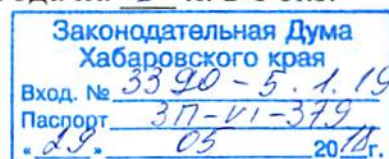 Законодательная Дума
Хабаровского края
Вход. № 3390-5.1.19
Паспорт ЗП-VI-379
"29" 05 2018г.